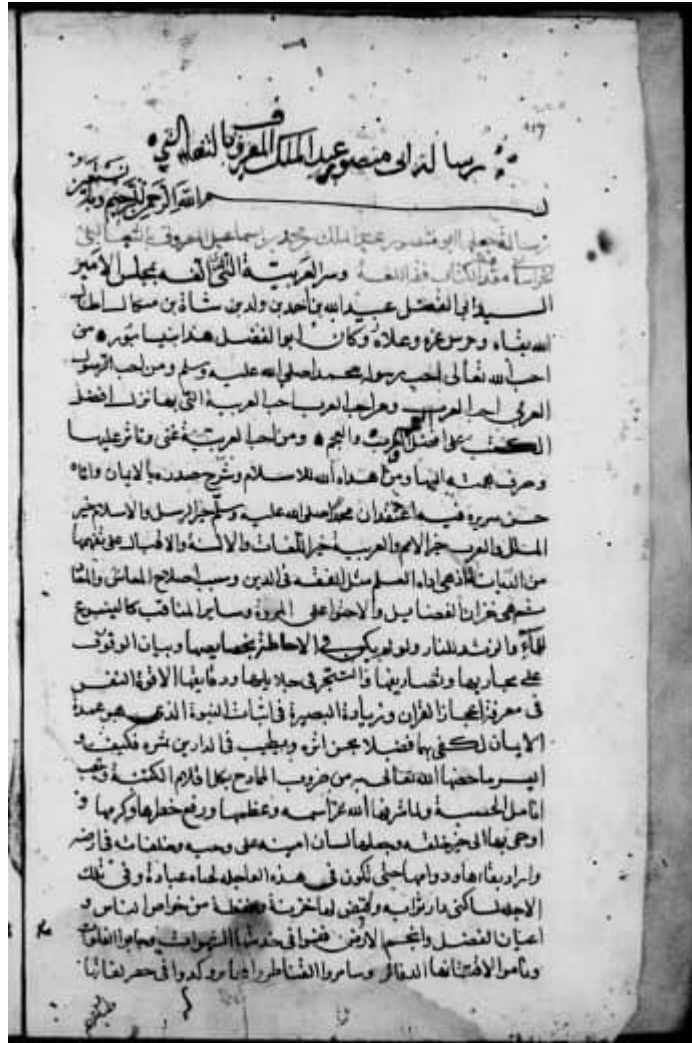 رسالة ابى منصور عبد الملك المعروف بالثعالبي
بسم الله الرحمن الرحيم وبه نستعين
رسالة جعلها ابو منصور عبد الملك بن محمد بن اسماعيل المعروف بالثعالبي
مقدمة لكتاب فقه اللغة وسر العربية الذي الفه لمجلس الامير
السيد ابي الفضل عبيد الله بن احمد بن ولد بن شاة بن ميكال اطال
الله بقاه وحرس عزه وعلاه وكان ابو الفضل هذا بنيسابوره من
احب الله تعالى احب رسوله محمدا صلى الله عليه وسلم ومن احب الرسول
العربي احب العرب ومن احب العرب احب العربية التي بها نزل افضل
الكتب على افضل العرب والعجم ومن احب العربية عنى وثابر عليها
وصرف همته اليها ومن هداه الله للاسلام وشرح صدره بالايمان واتاه
حسن سريرة فيه اعتقد ان محمدا صلى الله عليه وسلم خير الرسل والاسلام خير
الملل والعرب خير الامم والعربية خير اللغات والالسنة والاقبال على تفهمها
من الديانة اذ هى اداة العلم مثل التفقه فى الدين وسبب اصلاح المعاش والمعاد
ثم هى لاحراز الفضايل والاحتوا على المروة وساير المناقب كالينبوع
للماء والزند للنار ولو لم يكن فى الاحاطة بخصايصها وبيان الوقوف
على مجاريها وتصاريفها والتبحر فى جلايلها ودقايقها الا قوة النفس
فى معرفة اعجاز القران وزيادة البصيرة فى اثبات النبوة الذى هو عمدة
الايمان لكفى بهما فضلا يحسن اثره ويطيب فى الدارين ثمره فكيف و
ايسر ما خصها الله تعالى به من ضروب الممادح يكل اقلام الكتبة ويتعب
انامل الحسبة ولما شرفها الله عز اسمه وعظمها ورفع خطرها وكرمها و
اوحى بها الى خير خلقه وجعلها لسان امينه على وحيه وخلفائه فى ارضه
واراد بقاءها ودوامها حتى تكون فى هذه العاجلة لحياه عباده وفى تلك
الاجلة لساكنى دار ثوابه وقيض لها خزنة وحفظة من خواص الناس و
اعيان الفضل وانجم الارض فنسوا فى خدمتها الشهوات وجابوا الفلوات
ونادموا لاقتنائها الدفاتر وسامروا القناطر وكدوا فى حصر لغاتها